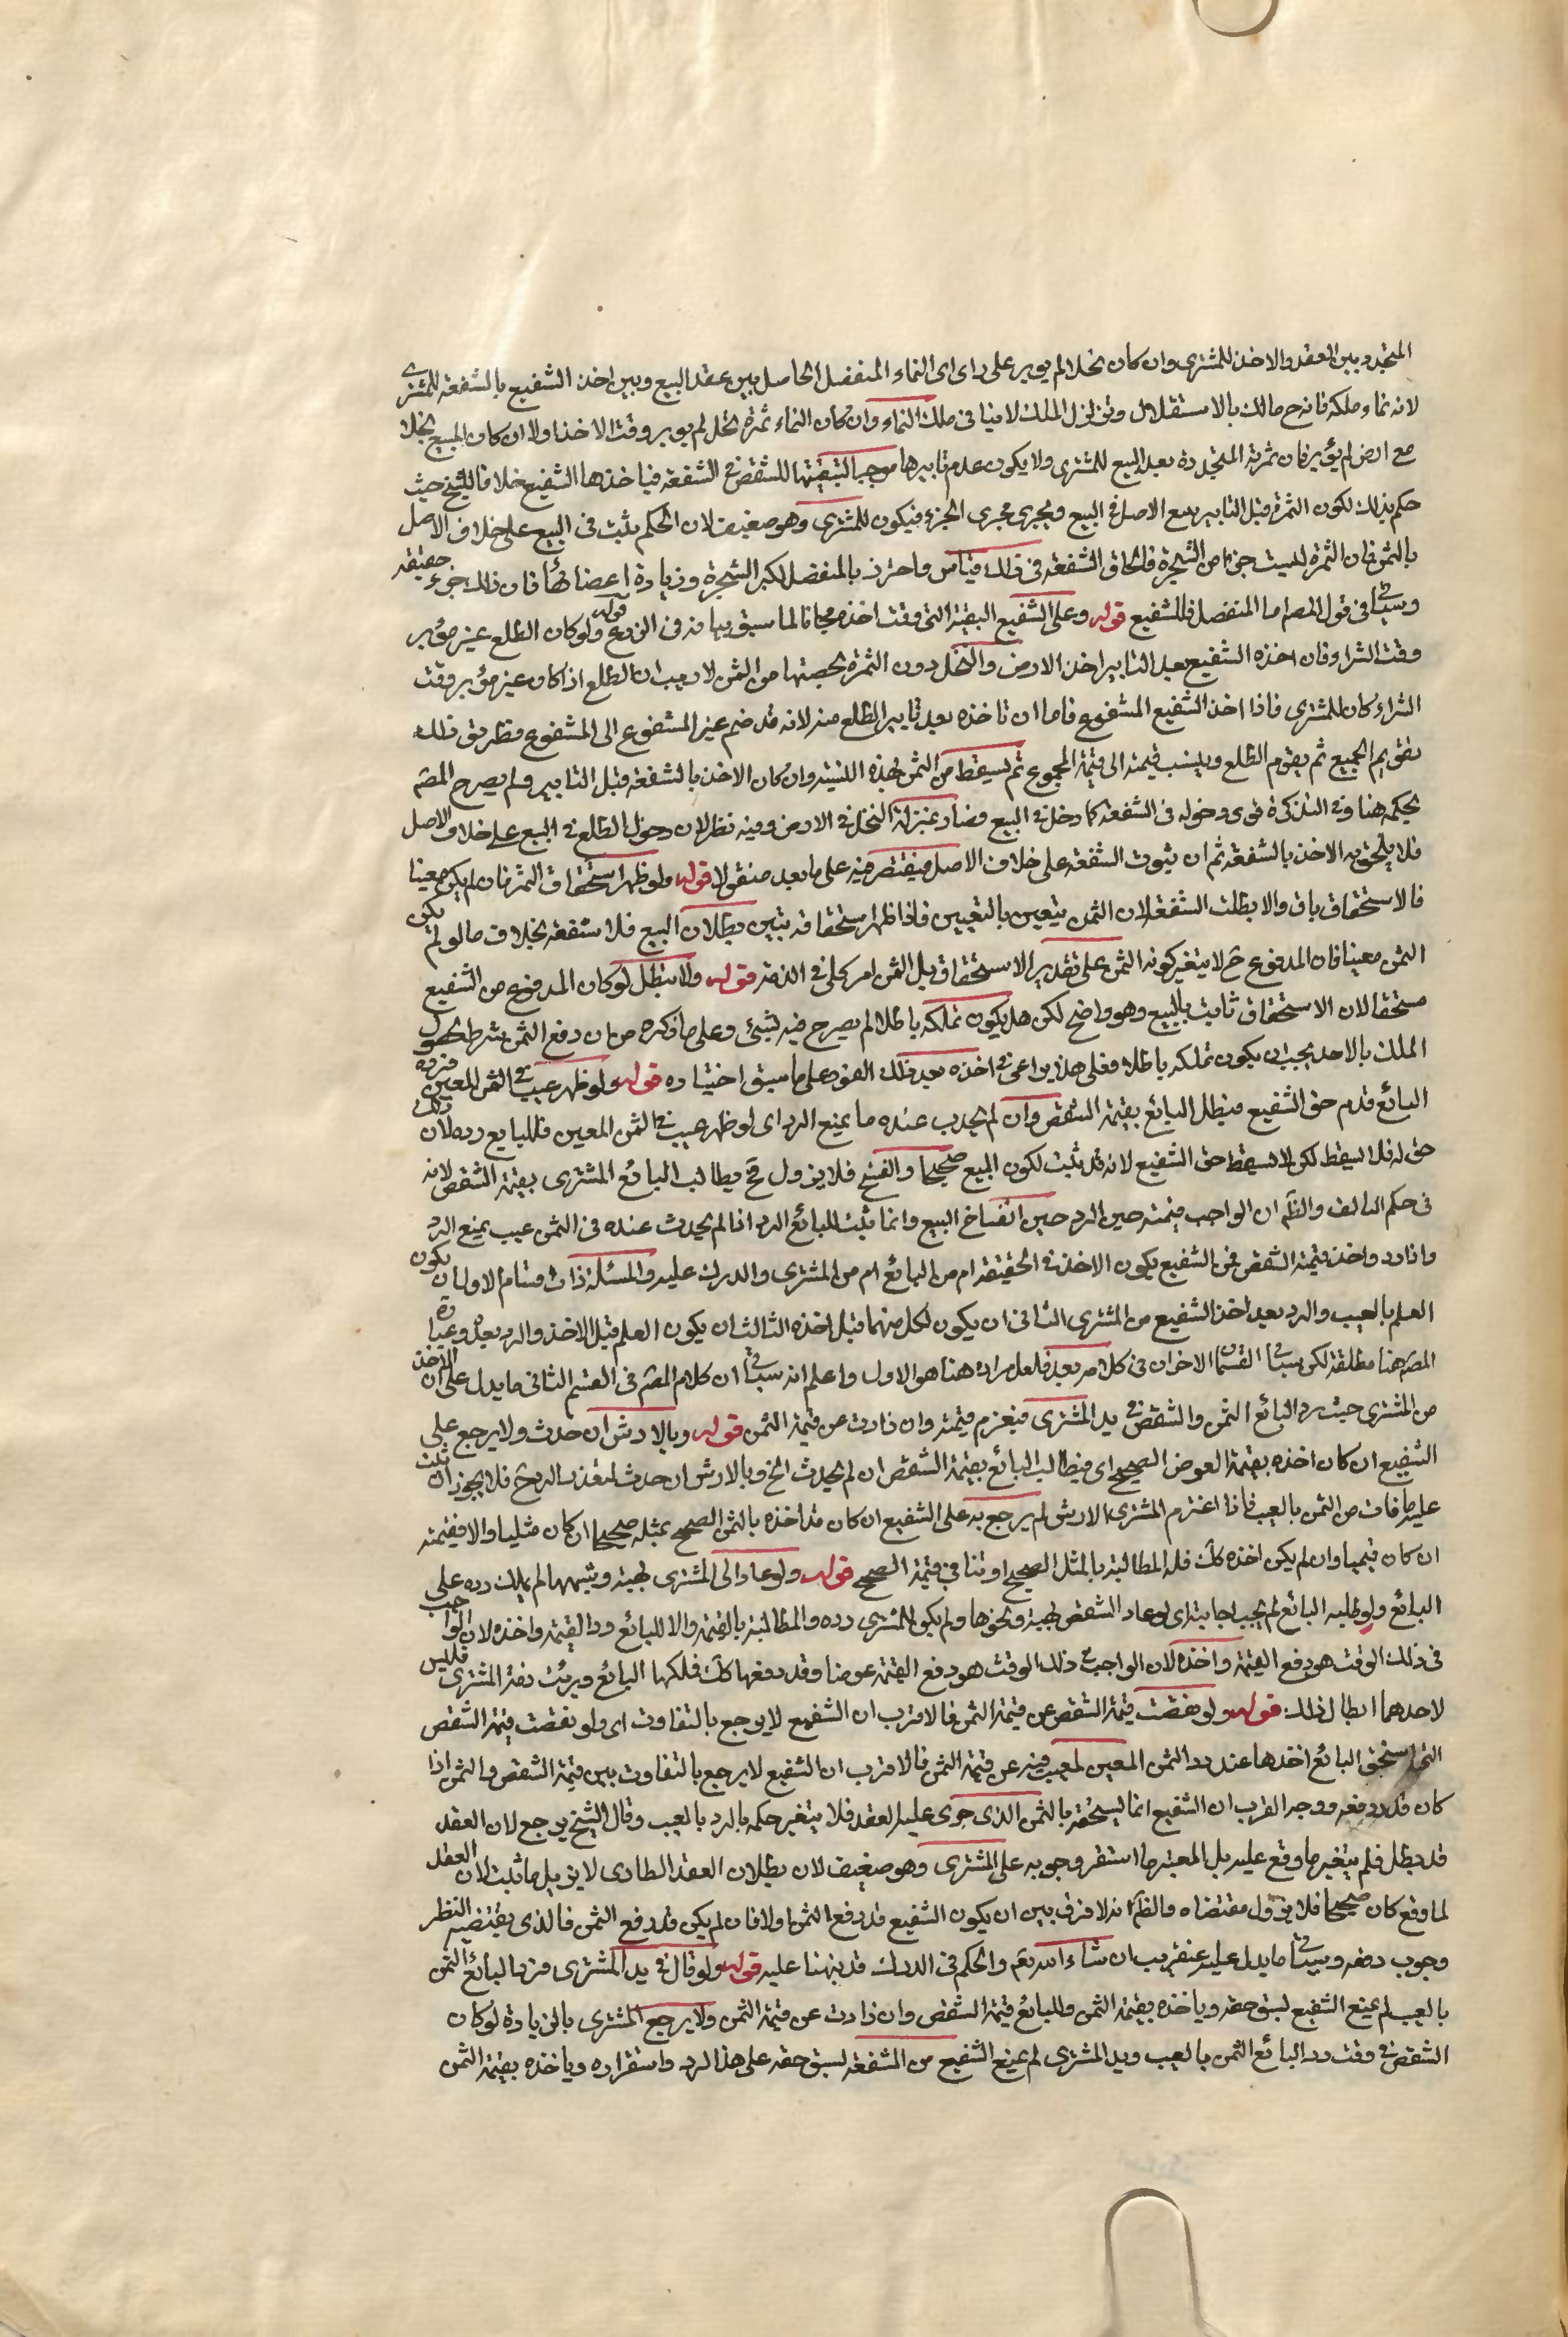 المتجدد بين العقد والاخذ للمشتري وان كان نخلا لم يوبر على راى اى النماء المنفصل الحاصل بين عقد البيع وبين اخذ الشفيع بالشفعة للمشتري
لانه نماء ملكه فانه ح مالك بالاستقلال وتزلزل الملك لا ينافى ملك النماء وان كان النماء ثمرة نخل لم يوبر وقت الاخذ اولا ان كان المبيع نخلا
مع ارض لم يؤبر فان ثمرته المتجددة بعد البيع للمشترى ولا يكون عدم تابيرها موجبا لتبعيتها للشقص فى الشفعة فياخذها الشفيع خلافا للشيخ حيث
حكم بذلك لكون الثمرة قبل التابير يتبع الاصل فى البيع ويجرى مجرى الجزء فيكون للمشترى وهو ضعيف لان الحكم يثبت فى البيع على خلاف الاصل
بالثمن فان الثمرة ليست جزءا من الشجرة فالحاق الشفعة فى ذلك قياس واحترز بالمنفصل لكبر الشجرة وزيادة اعضائها فان ذلك جزء حقيقة
وسياتى فى قول المصـ اما المنفصل فللشفيع قوله وعلى الشفيع البقية التى وقت اخذه مجانا لما سبق بيانه فى الزرع قوله ولو كان الطلع غير مؤبر
وقت الشراء فان اخذه الشفيع بعد التابير اخذ الارض والنخل دون الثمرة بحصتها من الثمن لا ريب ان الطلع اذا كان غير مؤبر وقت
الشراء كان للمشترى فاذا اخذ الشفيع المشفوع فاما ان تاخذه بعد تابير الطلع منه لانه قد ضم غير المشفوع الى المشفوع وطريق ذلك
تقويم الجميع ثم يقوم الطلع وينسب قيمته الى قيمة المجموع ثم يسقط من الثمن بهذه النسبة وان كان الاخذ بالشفعة قبل التابير ولم يصرح المصـ
بحكمه هنا وفى التذكرة قوى دخوله فى الشفعة كما دخل فى البيع فصار بمنزلة النخل فى الارض وفيه نظر لان دخول الطلع فى البيع على خلاف الاصل
فلا يلحق به الاخذ بالشفعة ثم ان ثبوت الشفعة على خلاف الاصل فيقتصر فيه على ما يعد منقولا قوله ولو ظهر استحقاق الثمن فان لم يكن معينا
فالاستحقاق باق والا بطلت الشفعة لان الثمن يتعين بالتعيين فاذا ظهر استحقاقه يتبين بطلان البيع فلا شفعة بخلاف ما لو لم يكن
الثمن معينا فان المدفوع ح لا يتغير كونه الثمن على تقدير الاستحقاق بل الثمن امر كلى فى الذمة قوله ولا يبطل لو كان المدفوع من الشفيع
مستحقا لان الاستحقاق ثابت بالبيع وهو واضح لكن هل يكون تملكه باطلا لم يصرح فيه بشئ وعلى ما ذكره من ان دفع الثمن شرط لحصول
الملك بالاخذ يجب ان يكون تملكه باطلا فعلى هذا يراعى فى اخذه بعد ذلك الفور على ما سبق اختياره قوله ولو ظهر عيب فى الثمن المعين فرده
البائع قدم حق الشفيع فيطل البائع بقيمة الشقص وان لم يحدث عنده ما يمنع الرد اى لو ظهر عيب فى الثمن المعين فللبايع رده لان ذلك
حق له فلا يسقط لكن لا يسقط حق الشفيع لانه قد ثبت لكون البيع صحيحا والفسخ فلا يزول ح فيطالب البائع المشترى بقيمة الشقص لانه
فى حكم التالف والظـ ان الواجب قيمته حين الرد حين انفساخ البيع وانما يثبت للبائع الرد اذا لم يحدث عنده فى الثمن عيب يمنع الرد
واذا رد واخذ بقيمة الشقص فمن الشفيع يكون الاخذ فى الحقيقة ام من البائع ام من المشترى والدرك عليه والمسئلة ذات اقسام الاول ان يكون
العلم بالعيب والرد بعد اخذ الشفيع من المشترى الثانى ان يكون لكل منهما قبل اخذه الثالث ان يكون العلم قبل الاخذ والرد بعده وعبارة
المصـ هنا مطلقة لكن سياتى القسمان الاخران فى كلامه بعد فلعل مراده هنا هو الاول واعلم انه سياتى ان كلام المصـ فى القسم الثانى ما يدل على ان الاخذ
من المشترى حيث يرد البائع الثمن والشقص فى يد المشترى فيغرم قيمته وان زادت عن قيمة الثمن قوله وبالارش ان حدث ولا يرجع على
الشفيع ان كان اخذه بقيمة العوض الصحيح اى فيطالب البائع بقيمة الشقص ان لم يحدث الخ وبالارش ان حدث لتعذر الرد ح فلا يجوز ان يثبت
عليه ما فات من الثمن بالعيب فاذا اغترم المشترى الارش لم يرجع به على الشفيع ان كان قد اخذه بالثمن الصحيح بمثله صحيحا ان كان مثليا والا فقيمته
ان كان قيميا وان لم يكن اخذه كك فله المطالبة بالمثل الصحيح او تنافى قيمة الصحيح قوله ولو عاد الى المشترى بهبة وشبهها لم يملك رده على
البائع ولو طلبه البائع لم يجب اجابته اى لو عاد الشقص بهبة ونحوها ولم يكن للمشترى رده والمطالبة بالقيمة ولا للبائع رد القيمة واخذه لان الواجب
فى ذلك الوقت هو دفع القيمة واخذه لان الواجب فى ذلك الوقت هو دفع القيمة عوضا وقد دفعها كك فملكها البائع وبرئت ذمة المشترى فليس
لاحدهما ابطال ذلك قوله ولو نقصت قيمة الشقص عن قيمة الثمن فالاقرب ان الشفيع لا يرجع بالتفاوت اى ولو نقصت قيمة الشقص
التى استحق البائع اخذها عند رد الثمن المعين لعيب فيه عن قيمة الثمن فالاقرب ان الشفيع لا يرجع بالتفاوت بين قيمة الشقص والثمن اذا
كان قد دفعه ووجه القرب ان الشفيع انما يستحقه بالثمن الذى جرى عليه العقد فلا يتغير حكمه بالرد بالعيب وقال الشيخ يرجع لان العقد
قد بطل فلم يتغير ما وقع عليه بل المعتبر ما استقر وجوبه على المشترى وهو ضعيف لان بطلان العقد الطارى لا يزيل ما ثبت لان العقد
لما وقع كان صحيحا فلا يزول مقتضاه والظـ انه لا فرق بين ان يكون الشفيع قد دفع الثمن او لا فان لم يكن قد دفع الثمن فالذى يقتضيه النظر
وجوب دفعه وسياتى ما يدل عليه عنقريب ان شاء الله تعـ والحكم فى الدرك قد نبهنا عليه قوله ولو قال فى يد المشترى فرد البائع الثمن
بالعيب لم يمنع الشفيع لسبق حقه وياخذه بقيمة الثمن وللبائع قيمة الشقص وان زادت عن قيمة الثمن ولا يرجع المشترى بالزيادة لو كان
الشقص فى وقت رد البائع الثمن بالعيب ويد المشترى لم يمنع الشفيع من الشفعة لسبق حقه على هذا الرد واستقراره وياخذه بقيمة الثمن